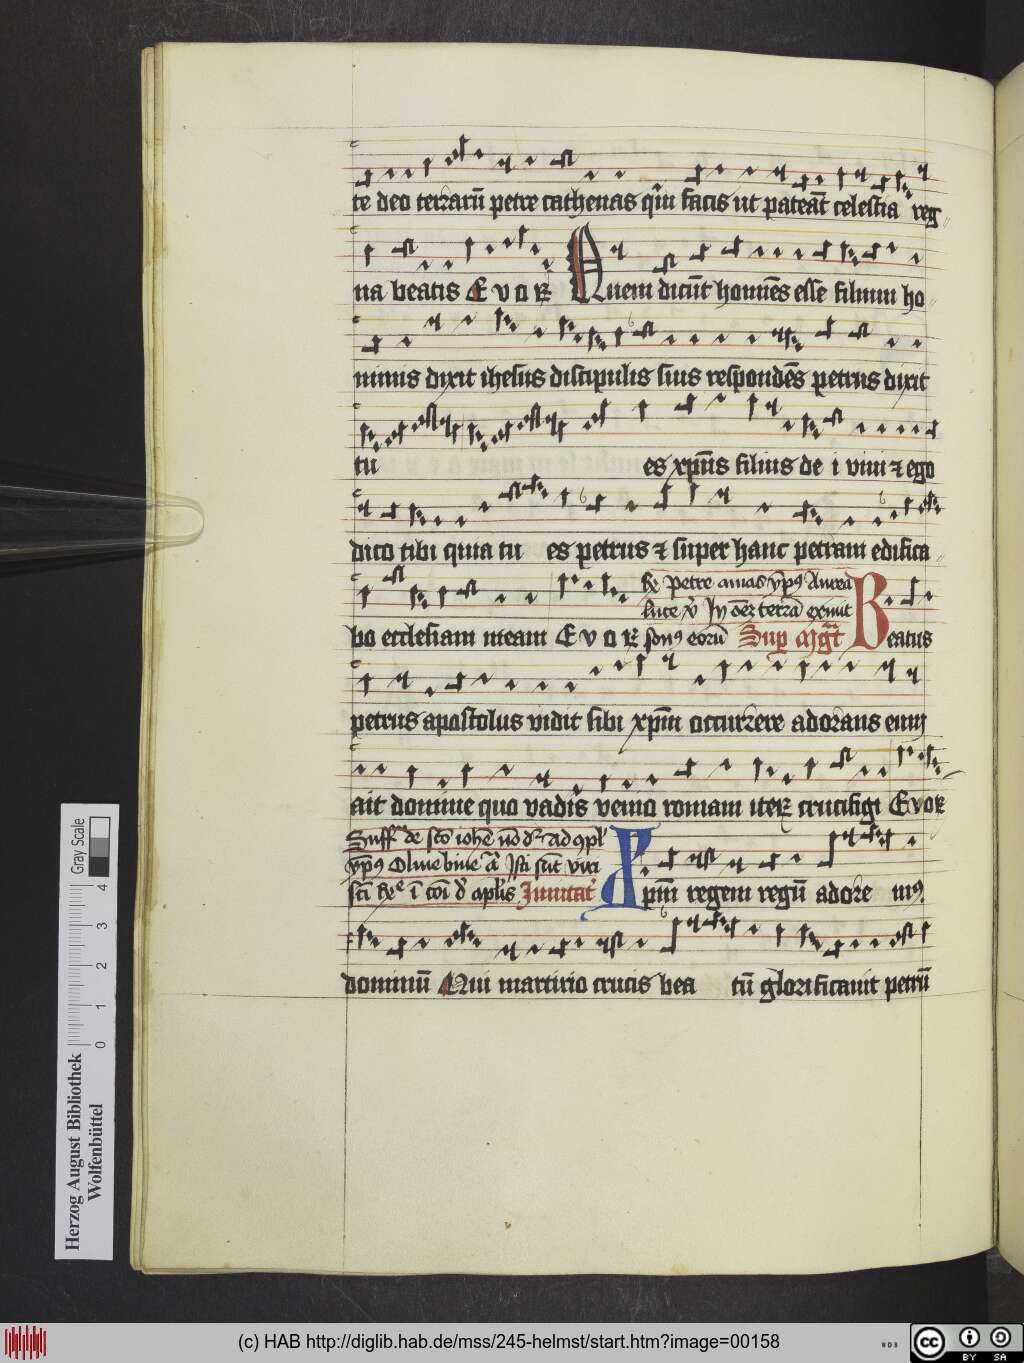 te deo terrarū petre cathenas qͥm facis ut pateāt celestia reg
na beatis E v o ꝶ Quem dicūt homiēs esse filium ho
minis dixit ihesus discipulis suis respondēs petrus dixit
tu es xpm̄s filius de i vivi ⁊ ego
dico tibi quia tu es petrus ⁊ super hanc petram edifica
Petre amas
luce
bo ecclesiam meam E v o ꝶ eorū Sup Beatus
petrus apostolus vidit sibi xpm̄ occurrere adorans eum
ait domine quo vadis venio romam iteꝶ crucifigi E v o ꝶ
Suffra de sco iohe
Olive bine Isti sūt viri
sc̄i Invitat Xpm̄ regem regū adore mꝰ
dominū Qui martirio crucis bea tū glorificavit petrū
Herzog August Bibliothek
Wolfenbüttel
Gray Scale
0 1 2 3 4
(c) HAB http://diglib.hab.de/mss/245-helmst/start.htm?image=00158
WDB
cc BY SA